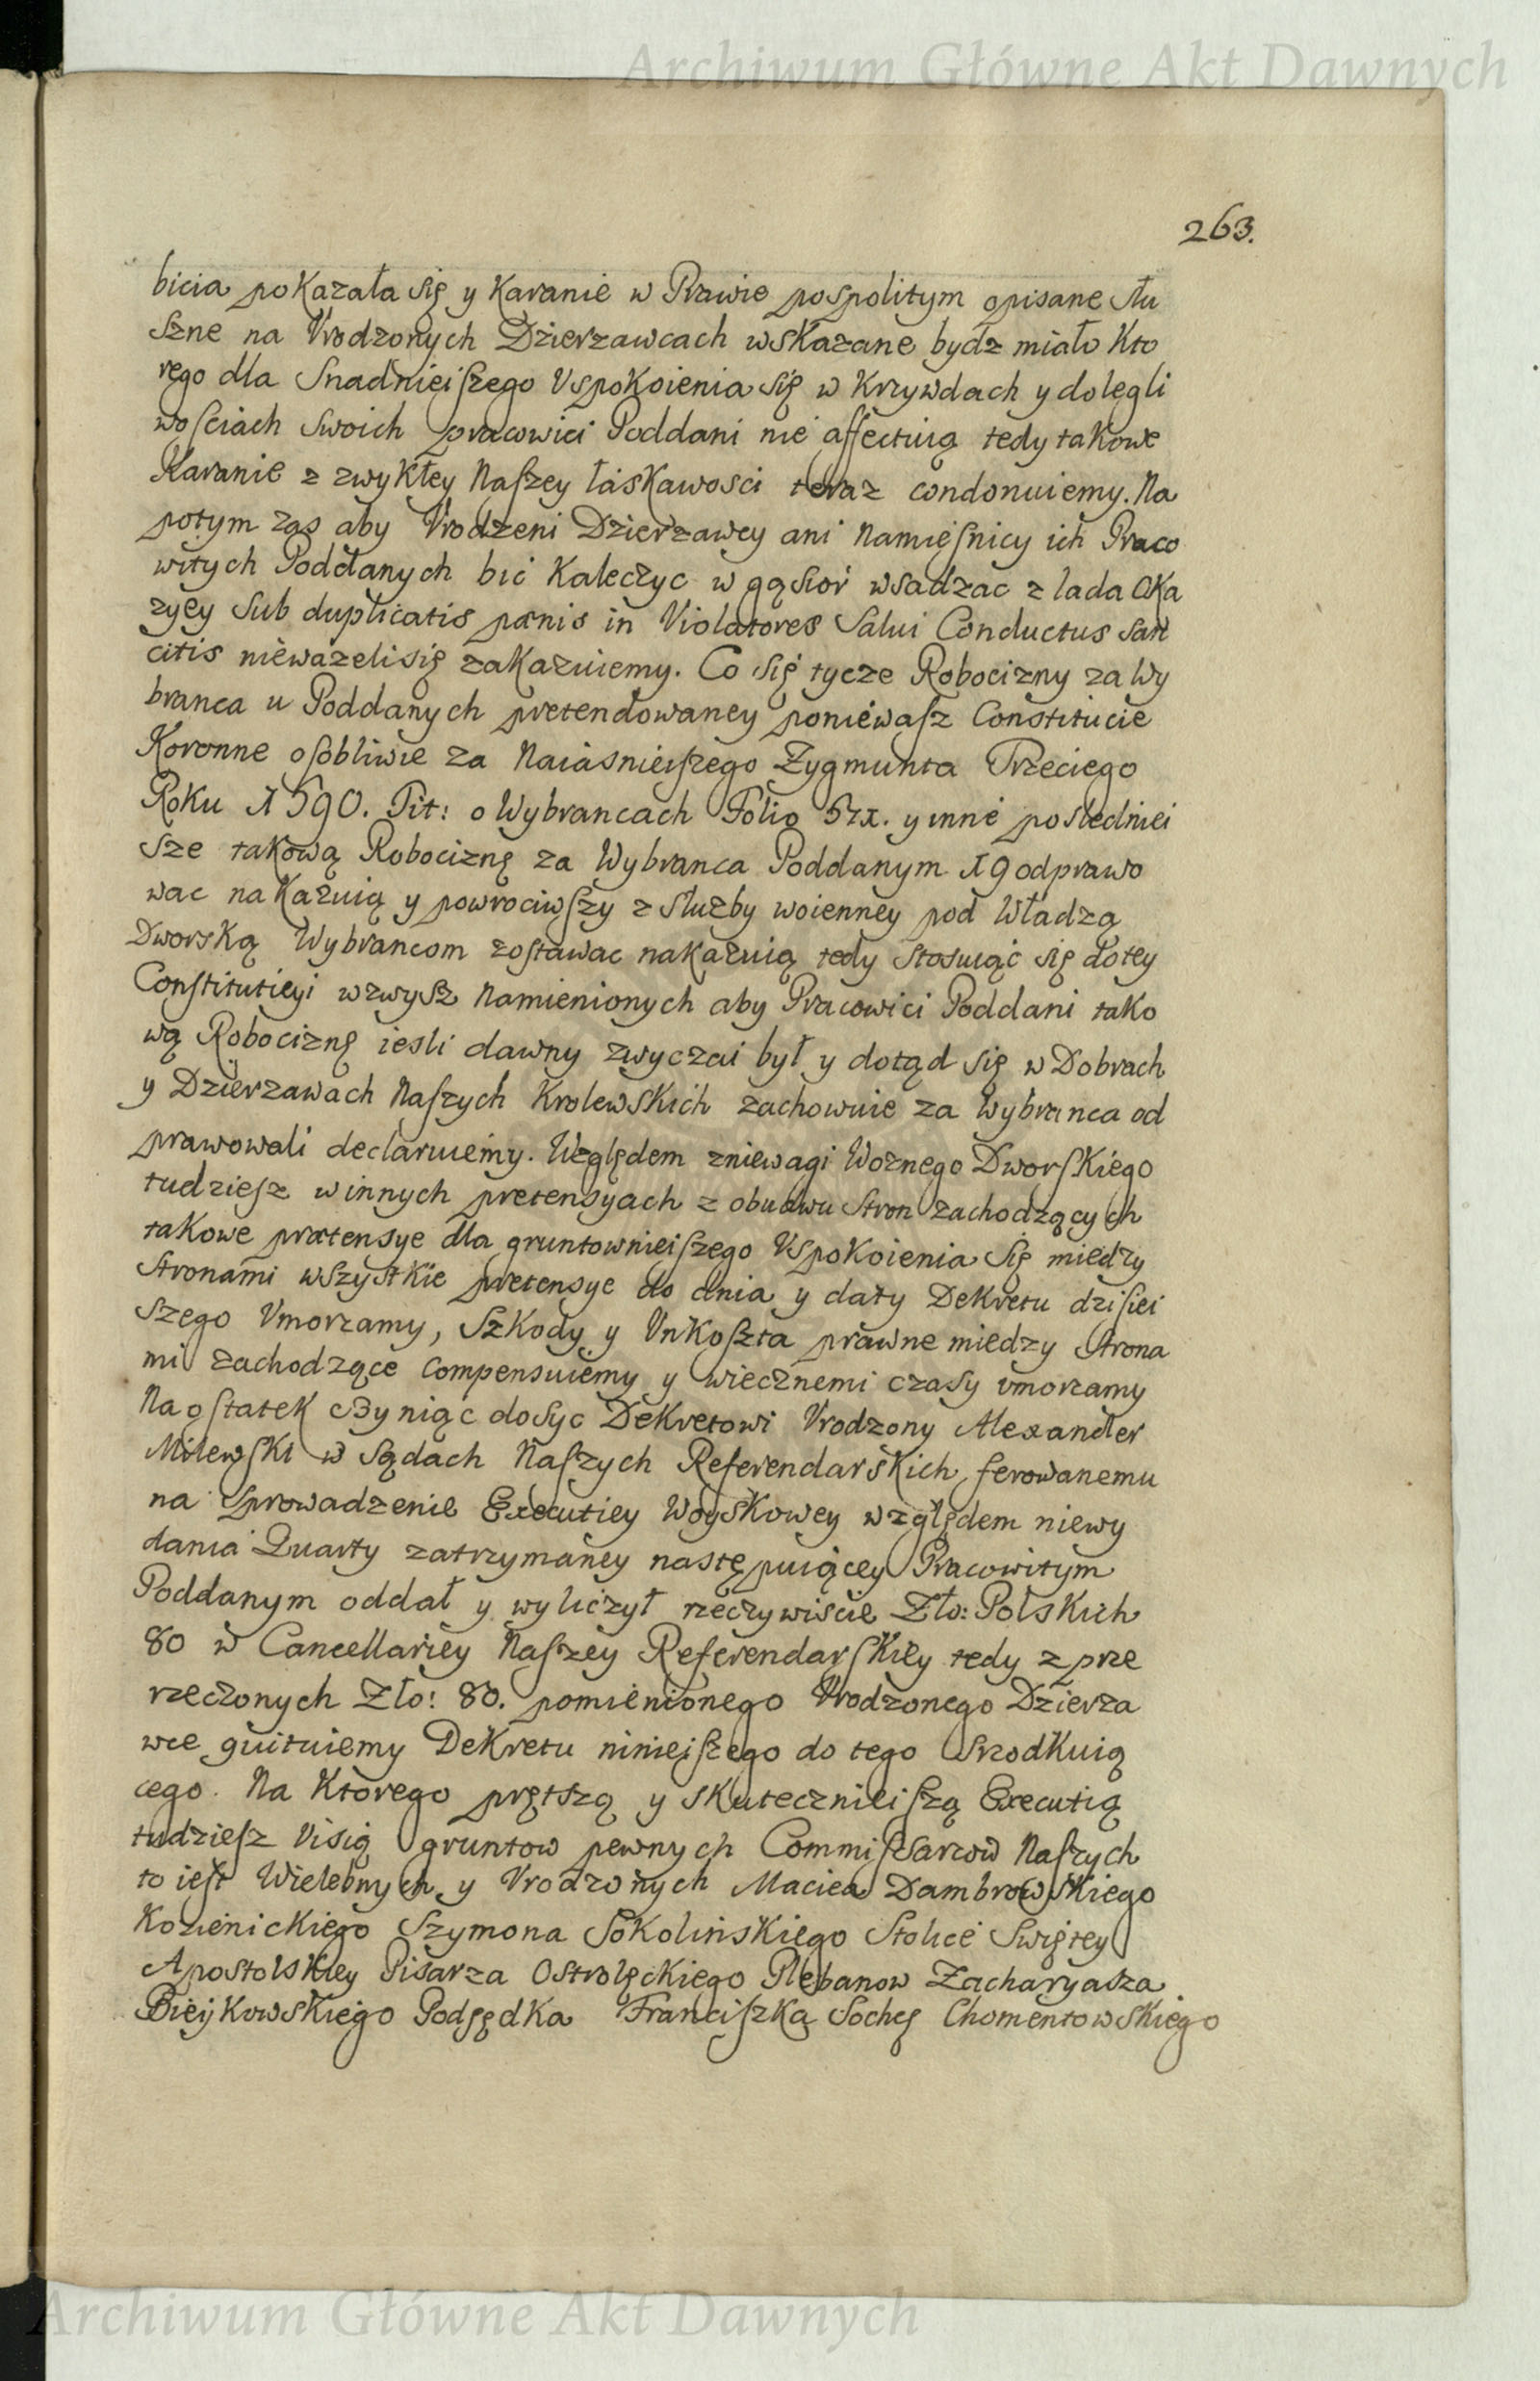 Archiwum Główne Akt Dawnych
263.
bicia pokazała się y karanie w Prawie pospolitym opisane słu
szne na Vrodzonych Dzierzawcach wskazane bydz miało Kto
rego dla Snadnieiszego Vspokoienia się w Krzywdach y dolegli
wosciach Swoich pracowici Poddani nie affectuią tedy takowe
Karanie z zwykłey Naszey łaskawosci teraz condonuiemy. Na
potym zas aby Vrodzeni Dzierzawcy ani Namiesnicy ich Praco
witych Poddanych bić Kaleczyc w gąsior wsadzac z lada Oka
zyey Sub duplicatis pænis in Violatores Salui Conductus San
citis niewazeli się zakazuiemy. Co się tycze Robocizny za Wy
branca u Poddanych pretendowaney poniewasz Constitucie
Koronne osobliwie za Naiasnieiszego Zygmunta Trzeciego
Roku 1590. Tit: o Wybrancach Folio 571. y inne posledniei
sze takową Robociznę za Wybranca Poddanym 19 odprawo
wac nakazuią y powrociwszy z słuzby woienney pod Władzą
Dworską Wybrancom zostawac nakazuią tedy stosuiąc się do tey
Constitutieyi wzwysz Namienionych aby Pracowici Poddani tako
wą Robociznę iesli dawny zwyczai był y dotąd się w Dobrach
y Dzierzawach Naszych Krolewskich zachowuie za Wybranca od
prawowali declaruiemy. Względem zniewagi Woznego Dworskiego
tudziesz w innych pretensyach z obudwu Stron zachodzących
takowe prætensye dla gruntownieiszego Vspokoienia Się miedzy
Stronami wszystkie pretensye do dnia y daty Dekretu dzisiei
szego Vmorzamy, Szkody y Vnkoszta prawne miedzy Strona
mi zachodzące compensuiemy y wiecznemi czasy vmorzamy
Na ostatek czyniąc dosyc Dekretowi Vrodzony Alexander
Milewski w Sądach Naszych Referendarskich ferowanemu
na Sprowadzenie Executiey Woyskowey względem niewy
dania Quarty zatrzymaney następuiącey Pracowitym
Poddanym oddał y wyliczył rzeczywiscie Zło: Polskich
80 w Cancellariey Naszey Referendarskiey tedy z prze
rzeczonych Zło: 80. pomienionego Vrodzonego Dzierza
wce quituiemy Dekretu ninieiszego do tego Srzodkuią
cego. Na Ktorego prętszą y skutecznieiszą Executią
tudziesz Visią gruntow pewnych Commissarzow Naszych
to iest Wielebnych y Vrodzonych Macieia Dambrowskiego
Kozienickiego Szymona Sokolinskiego Stolice Swiętey
Apostolskiey Pisarza Ostrolęckiego Plebanow Zacharyasza
Bieykowskiego Podsędka Franciszka Sochę Chomentowskiego
Archiwum Główne Akt Dawnych